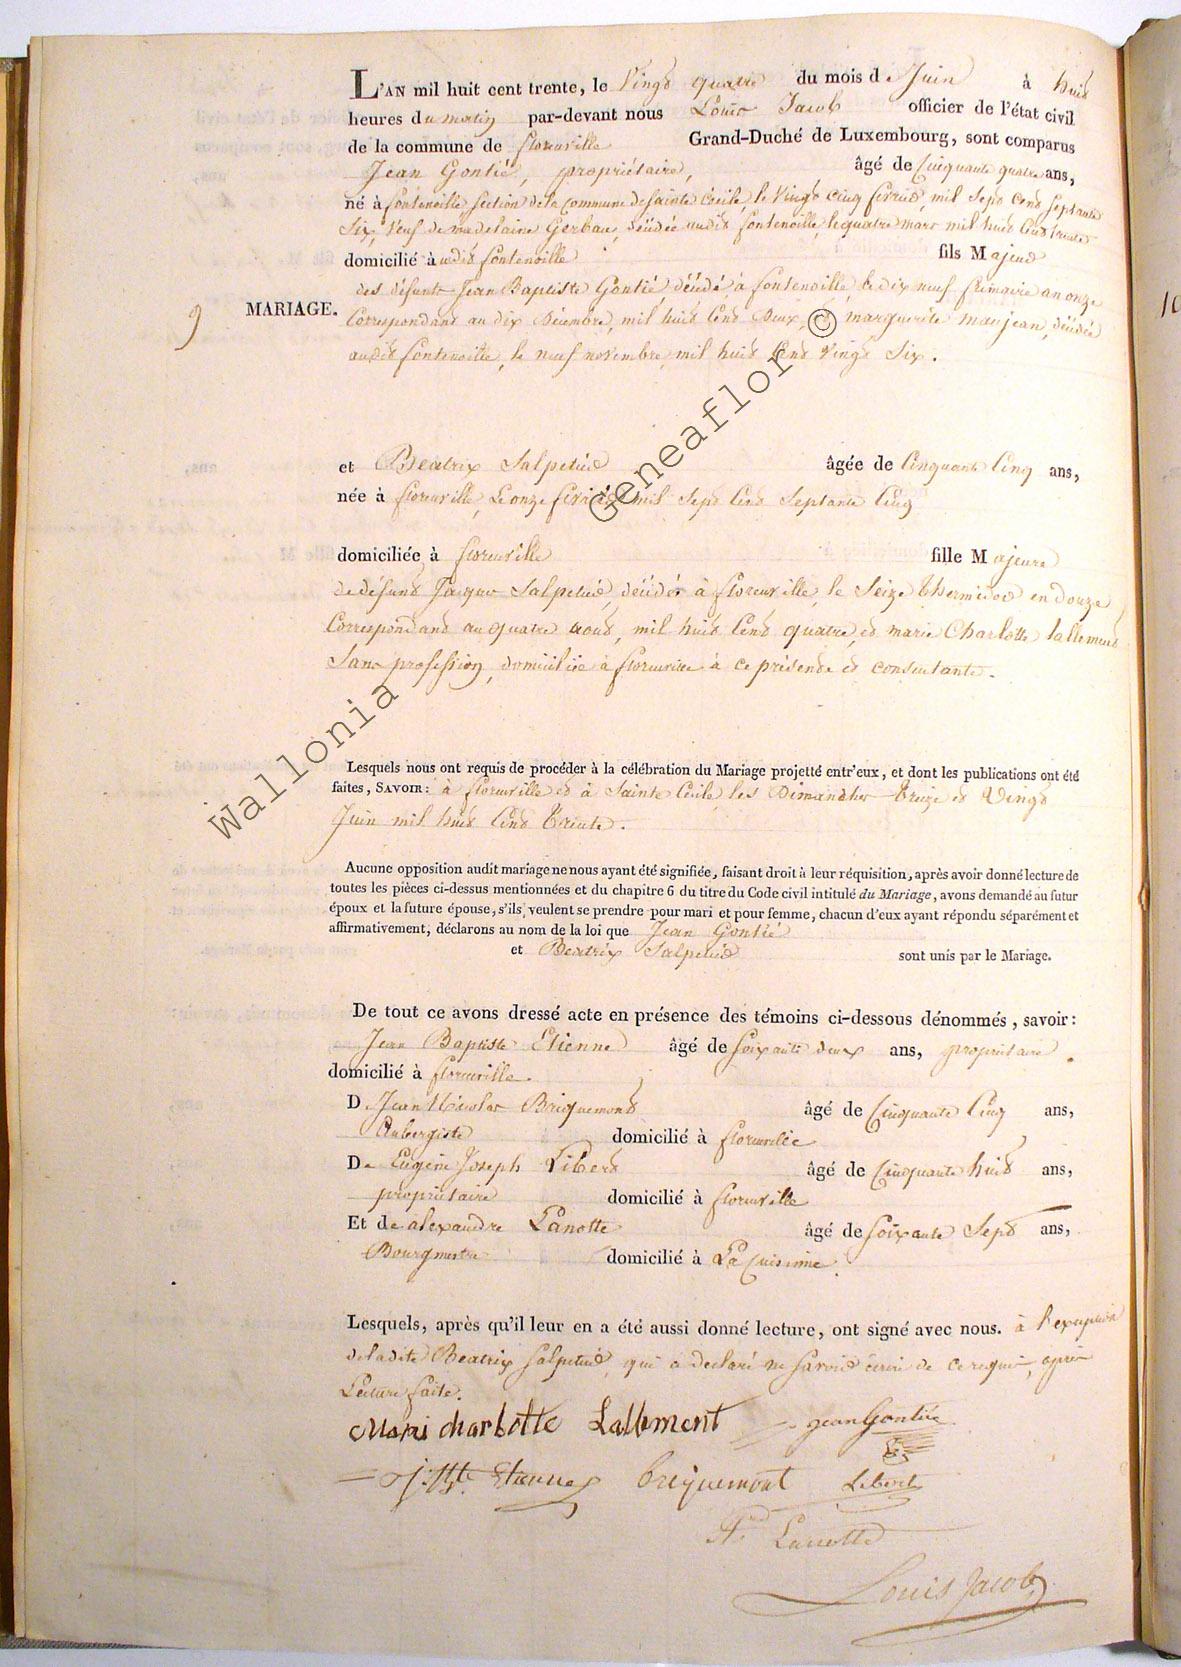 L'AN mil huit cent trente, le Vingt quatre du mois de Juin à huit
heures du matin par-devant nous Louis Jacob officier de l'état civil
de la commune de florenville Grand-Duché de Luxembourg, sont comparus
Jean Gontié, propriétaire, âgé de Cinquante quatre ans,
né à fontenoille, section de la commune de sainte Cécile, le Vingt cinq février, mil Sept Cent Septante
Six, Veuf de madelaine Gerbau, décédée audit fontenoille, le quatre mars mil huit Cent trente
domicilié à audit fontenoille fils Majeur
des défunts Jean Baptiste Gontié, décédé à fontenoille, le dix neuf frimaire an onze
9 MARIAGE. Correspondant au dix Décembre, mil huit Cent Deux, et marguerite manjean, décédée
audit fontenoille, le neuf novembre, mil huit Cent Vingt Six.
et Beatrix Salpetier âgée de Cinquante Cinq ans,
née à florenville, Le onze février mil Sept Cent Septante Cinq
domiciliée à florenville fille Majeure
de défunt Jaque Salpetier, décédé à florenville, le Seize thermidor en douze
Correspondant au quatre aout, mil huit Cent quatre, et marie Charlotte lallement
Sans profession, domiciliée à florenville à ce présente et consentante.
Lesquels nous ont requis de procéder à la célébration du Mariage projetté entr'eux, et dont les publications ont été
faites, SAVOIR: à florenville et à Sainte Cécile, les Dimanches treize et Vingt
Juin mil huit Cent trente.
Aucune opposition audit mariage ne nous ayant été signifiée, faisant droit à leur réquisition, après avoir donné lecture de
toutes les pièces ci-dessus mentionnées et du chapitre 6 du titre du Code civil intitulé du Mariage, avons demandé au futur
époux et la future épouse, s'ils veulent se prendre pour mari et pour femme, chacun d'eux ayant répondu séparément et
affirmativement, déclarons au nom de la loi que Jean Gontié
et Beatrix Salpetier sont unis par le Mariage.
De tout ce avons dressé acte en présence des témoins ci-dessous dénommés, savoir:
Jean Baptiste Etienne âgé de Soixante deux ans, propriétaire.
domicilié à florenville.
De Jean Nicolas Briquemont âgé de Cinquante Cinq ans,
Aubergiste domicilié à florenville
De Eugène Joseph Libert âgé de Cinquante huit ans,
propriétaire domicilié à florenville
Et de alexandre Lanotte âgé de Soixante Sept ans,
Bourgmestre domicilié à La Cuisinne.
Lesquels, après qu'il leur en a été aussi donné lecture, ont signé avec nous. à l'exception
de ladite Beatrix Salpetier, qui a declaré ne Savoir écrire de ce requise, après
Lecture faite.
Mari charlotte Lallement jean Gontié
J: Bte Etienne briquemont Libert
A. Lanotte
Louis Jacob
Wallonia Geneaflor ©